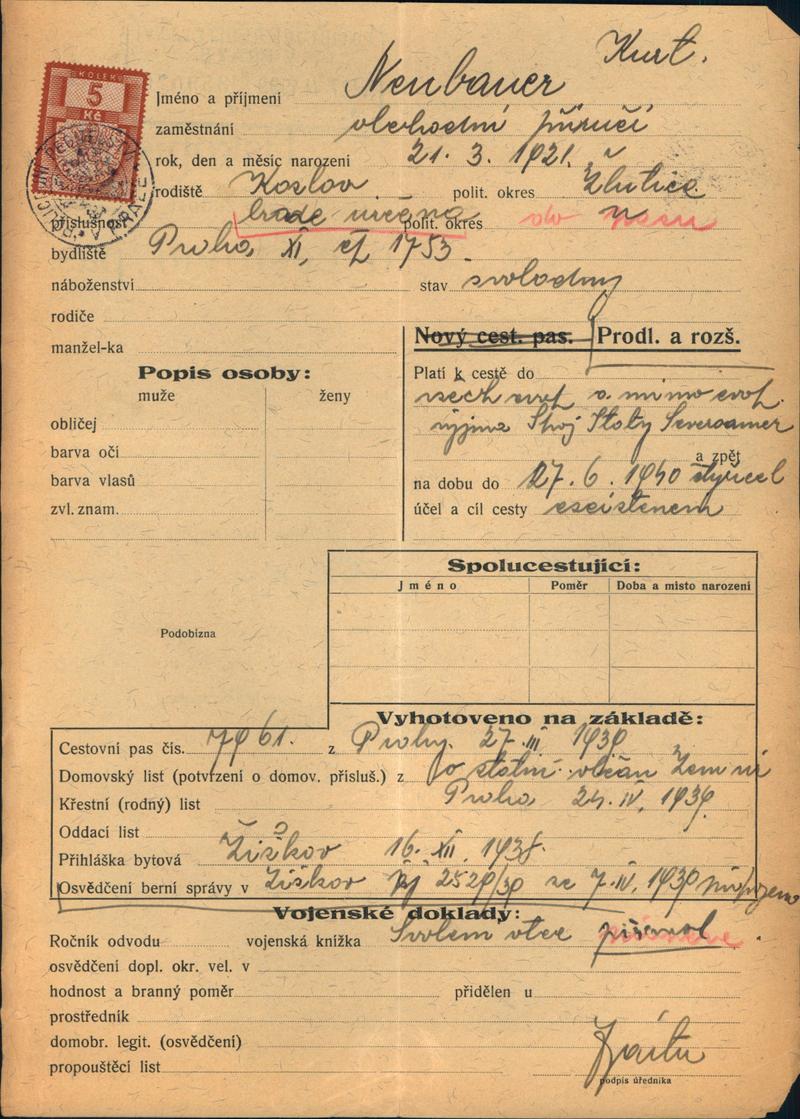 Kurt.
KOLEK
5
Kč
Jméno a příjmení Neubauer
zaměstnání obchodní příručí
rok, den a měsíc narození 21. 3. 1921.
rodiště Kozlov polit. okres Žlutice
příslušnost bude určena polit. okres
bydliště Praha XI, čp 1753.
náboženství stav svobodný
rodiče
manžel-ka
Nový cest. pas. Prodl. a rozš.
Popis osoby:
muže ženy
obličej
barva očí
barva vlasů
zvl. znam.
Platí k cestě do
všech evrop. a mimo evrop.
vyjma Spoj Státy Severoamer
a zpět
na dobu do 27. 6. 1940
účel a cíl cesty
Spolucestující:
Jméno Poměr Doba a místo narození
Podobizna
Vyhotoveno na základě:
Cestovní pas čís. 7961. z Prahy. 27. III. 1939
Domovský list (potvrzení o domov. přísluš.) z o státní občan
Křestní (rodný) list Praha 24. IV. 1939.
Oddací list
Přihláška bytová Žižkov 16. XII. 1938.
Osvědčení berní správy v Žižkov 2529/39 ze 7. IV. 1939
Vojenské doklady:
Ročník odvodu vojenská knížka Svolení otce
osvědčení dopl. okr. vel. v
hodnost a branný poměr přidělen u
prostředník
domobr. legit. (osvědčení)
propouštěcí list
podpis úředníka